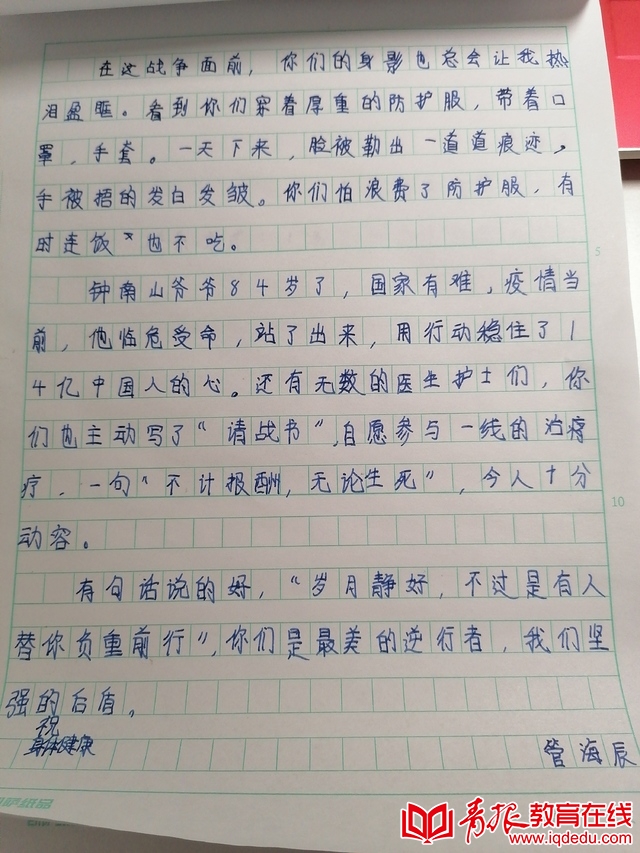 在这战争面前，你们的身影也总会让我热
泪盈眶。看到你们穿着厚重的防护服，带着口
罩，手套。一天下来，脸被勒出一道道痕迹，
手被捂的发白发皱。你们怕浪费了防护服，有
时连饭 也不吃。
钟南山爷爷84岁了，国家有难，疫情当
前，他临危受命，站了出来，用行动稳住了1
4亿中国人的心。还有无数的医生护士们，你
们也主动写了“请战书”，自愿参与一线的治疗
疗，一句“不计报酬，无论生死”，今人十分
动容。
有句话说的好，“岁月静好，不过是有人
替你负重前行”，你们是最美的逆行者，我们坚
强的后盾。
祝
身体健康
管海辰
5
10
青报教育在线
www.iqdedu.com